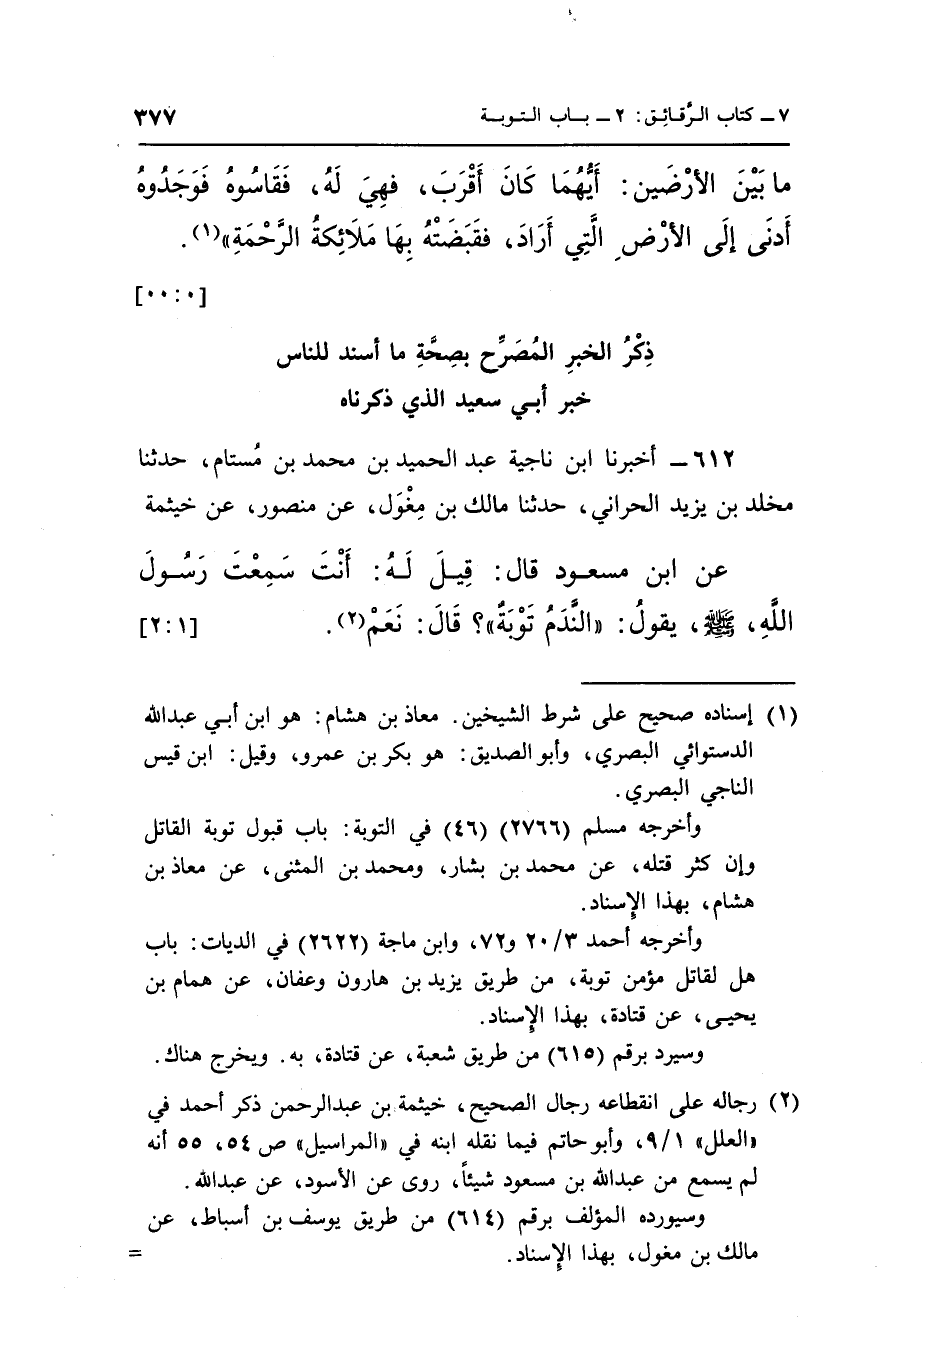 ٧ ـ كتاب الرُّقائِق: ٢ ـ باب التوبة ٣٧٧
ما بَيْنَ الأرْضَين: أَيُّهُمَا كَانَ أَقْرَبَ، فهِيَ لَهُ، فَقَاسُوهُ فَوَجَدُوهُ
أَدنَى إلَى الأرْضِ الَّتِي أَرَادَ، فقَبَضَتْهُ بِهَا مَلَائِكةُ الرَّحْمَةِ»(١).
[٠٠:٠]
ذِكْرُ الخبرِ المُصَرِّح بصِحَّةِ ما أسند للناس
خبر أبي سعيد الذي ذكرناه
٦١٢ ـ أخبرنا ابن ناجية عبد الحميد بن محمد بن مُستام، حدثنا
مخلد بن يزيد الحراني، حدثنا مالك بن مِغْوَل، عن منصور، عن خيثمة
عن ابن مسعود قال: قِيلَ لَهُ: أَنْتَ سَمِعْتَ رَسُولَ
اللَّهِ، ﷺ، يقولُ: «النَّدَمُ تَوْبَةٌ»؟ قَالَ: نَعَمْ(٢). [٢:١]
(١) إسناده صحيح على شرط الشيخين. معاذ بن هشام: هو ابن أبي عبدالله
الدستوائي البصري، وأبو الصديق: هو بكر بن عمرو، وقيل: ابن قيس
الناجي البصري.
وأخرجه مسلم (٢٧٦٦) (٤٦) في التوبة: باب قبول توبة القاتل
وإن كثر قتله، عن محمد بن بشار، ومحمد بن المثنى، عن معاذ بن
هشام، بهذا الإسناد.
وأخرجه أحمد ٢٠/٣ و٧٢، وابن ماجة (٢٦٢٢) في الديات: باب
هل لقاتل مؤمن توبة، من طريق يزيد بن هارون وعفان، عن همام بن
يحيى، عن قتادة، بهذا الإسناد.
وسيرد برقم (٦١٥) من طريق شعبة، عن قتادة، به. ويخرج هناك.
(٢) رجاله على انقطاعه رجال الصحيح، خيثمة بن عبدالرحمن ذكر أحمد في
«العلل» ٩/١، وأبو حاتم فيما نقله ابنه في «المراسيل» ص ٥٤، ٥٥ أنه
لم يسمع من عبدالله بن مسعود شيئاً، روى عن الأسود، عن عبدالله.
وسيورده المؤلف برقم (٦١٤) من طريق يوسف بن أسباط، عن
مالك بن مغول، بهذا الإسناد. =